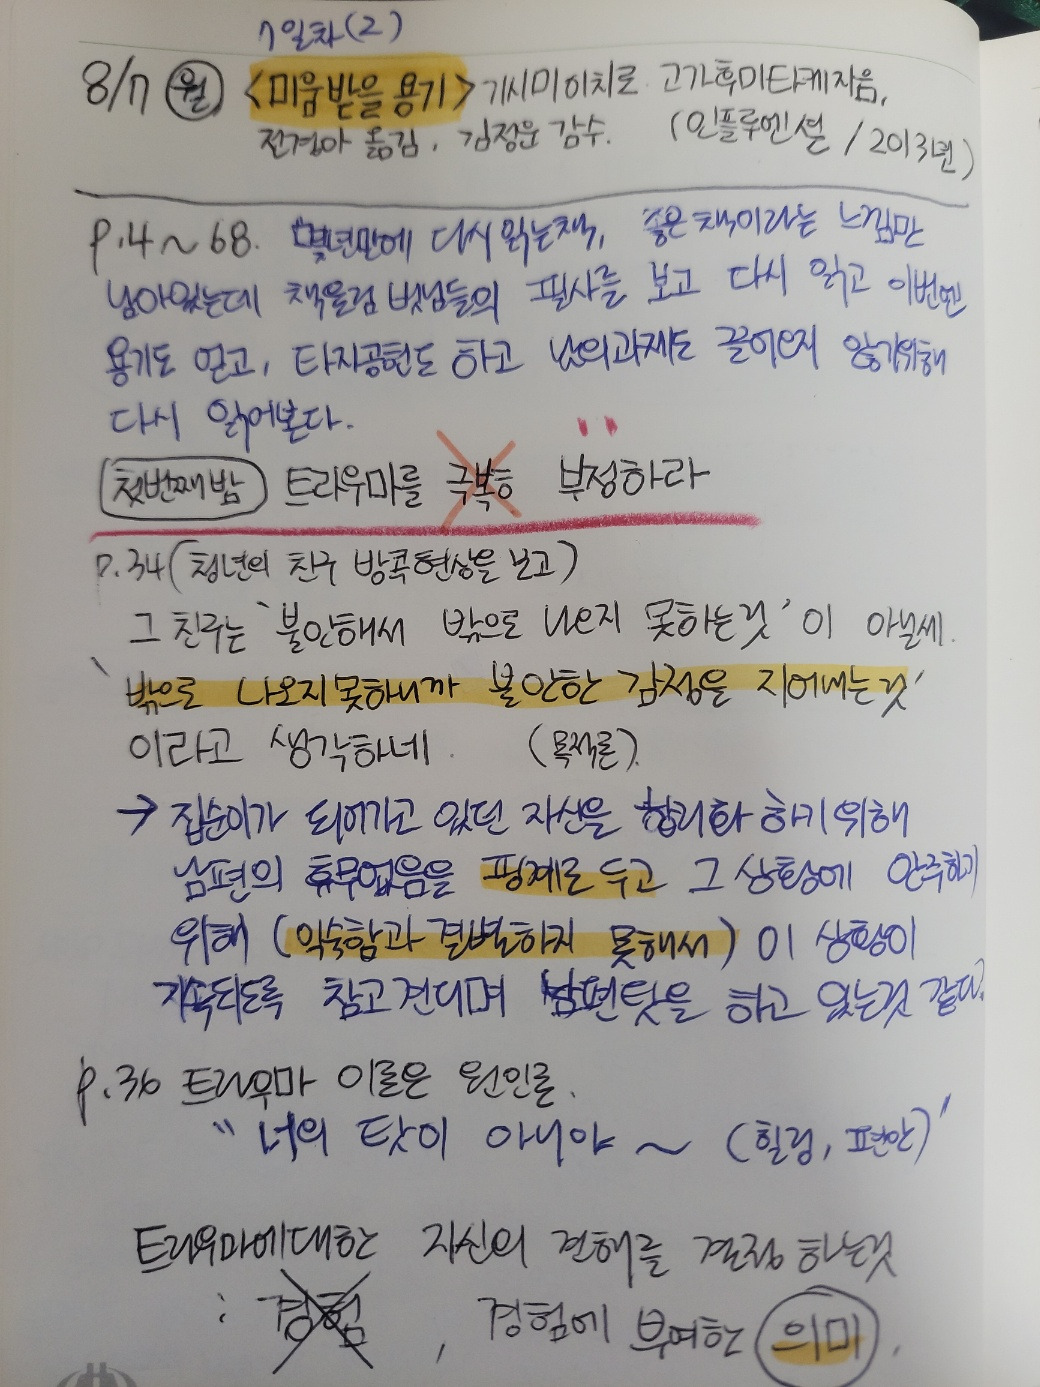 7일차(2)
8/7 (월) <미움받을 용기> 기시미 이치로 고가후미타케 지음,
전경아 옮김, 김정운 감수. (인플루엔셜 / 2013년)
p.4~68. 몇년만에 다시 읽는책, 좋은 책이라는 느낌만
남아있는데 책올림 벗님들의 필사를 보고 다시 읽고 이번엔
용기도 얻고, 타자공헌도 하고 남의과제도 끌어오지 않기위해
다시 읽어본다.
첫번째밤 트라우마를 극복하 부정하라
P.34(청년의 친구 방콕현상을 보고)
그 친구는 '불안해서 밖으로 나오지 못하는것'이 아닐세.
'밖으로 나오지못하니까 불안한 감정을 지어내는것'
이라고 생각하네. (목적론).
→ 집순이가 되어가고 있던 자신을 합리화 하기위해
남편의 휴무없음을 핑계로 두고 그 상황에 안주하기
위해 (익숙함과 결별하지 못해서) 이 상황이
지속되도록 참고견디며 남편탓을 하고 있는것 같다.
p.36 트라우마 이론은 원인론.
"너의 탓이 아니야 ~ (힐링, 편안)"
트라우마에대한 자신의 견해를 결정하는것
: 경험, 경험에 부여한 의미.